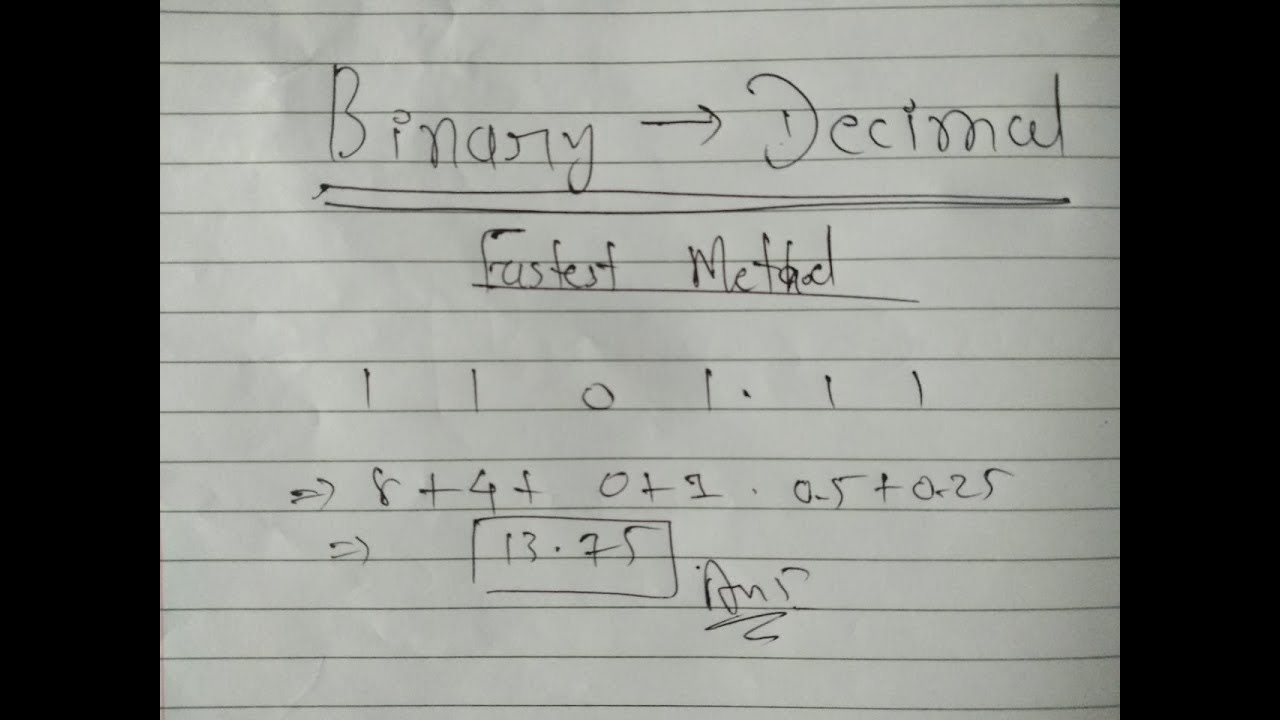 Binary → Decimal
Fastest Method
1 1 0 1 . 1 1
⇒ 8 + 4 + 0 + 1 . 0.5 + 0.25
⇒ 13.75 Ans